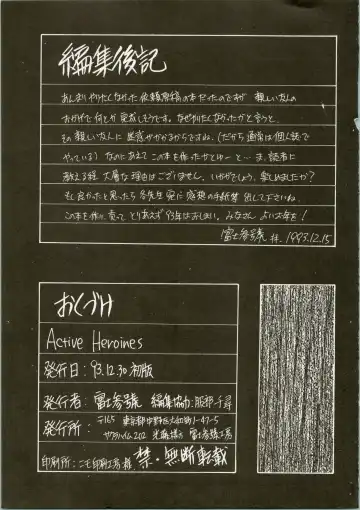 編集後記
あんまりやりたくなかった依頼原稿の本だったのですが 親しい友人の
おかげで何とか完成しそうです。なぜやりたくなかったかと言うと、
その親しい友人に迷惑がかかるからですね。(だから通常は個人誌で
やっている) なのにあえてこの本を作ったかとゆーと〜 ま、読者に
教える程 大層な理由はございません。いかがでしょう、楽しめましたか?
もし良かったと思ったら各先生宛に感想の手紙等 出して下さいね。
この本を作り、売って とりあえず93年はおしまい。みなさん よいお年を!
富士参號 拝. 1993.12.15
おくづけ
Active Heroines
発行日:93.12.30 初版
発行者:富士参號 編集協力:服部千尋
発行所:〒165 東京都中野区大和町1-47-5
サクラハイム202 様方 富士参號工房
印刷所:ニモ印刷工房 様 禁・無断転載